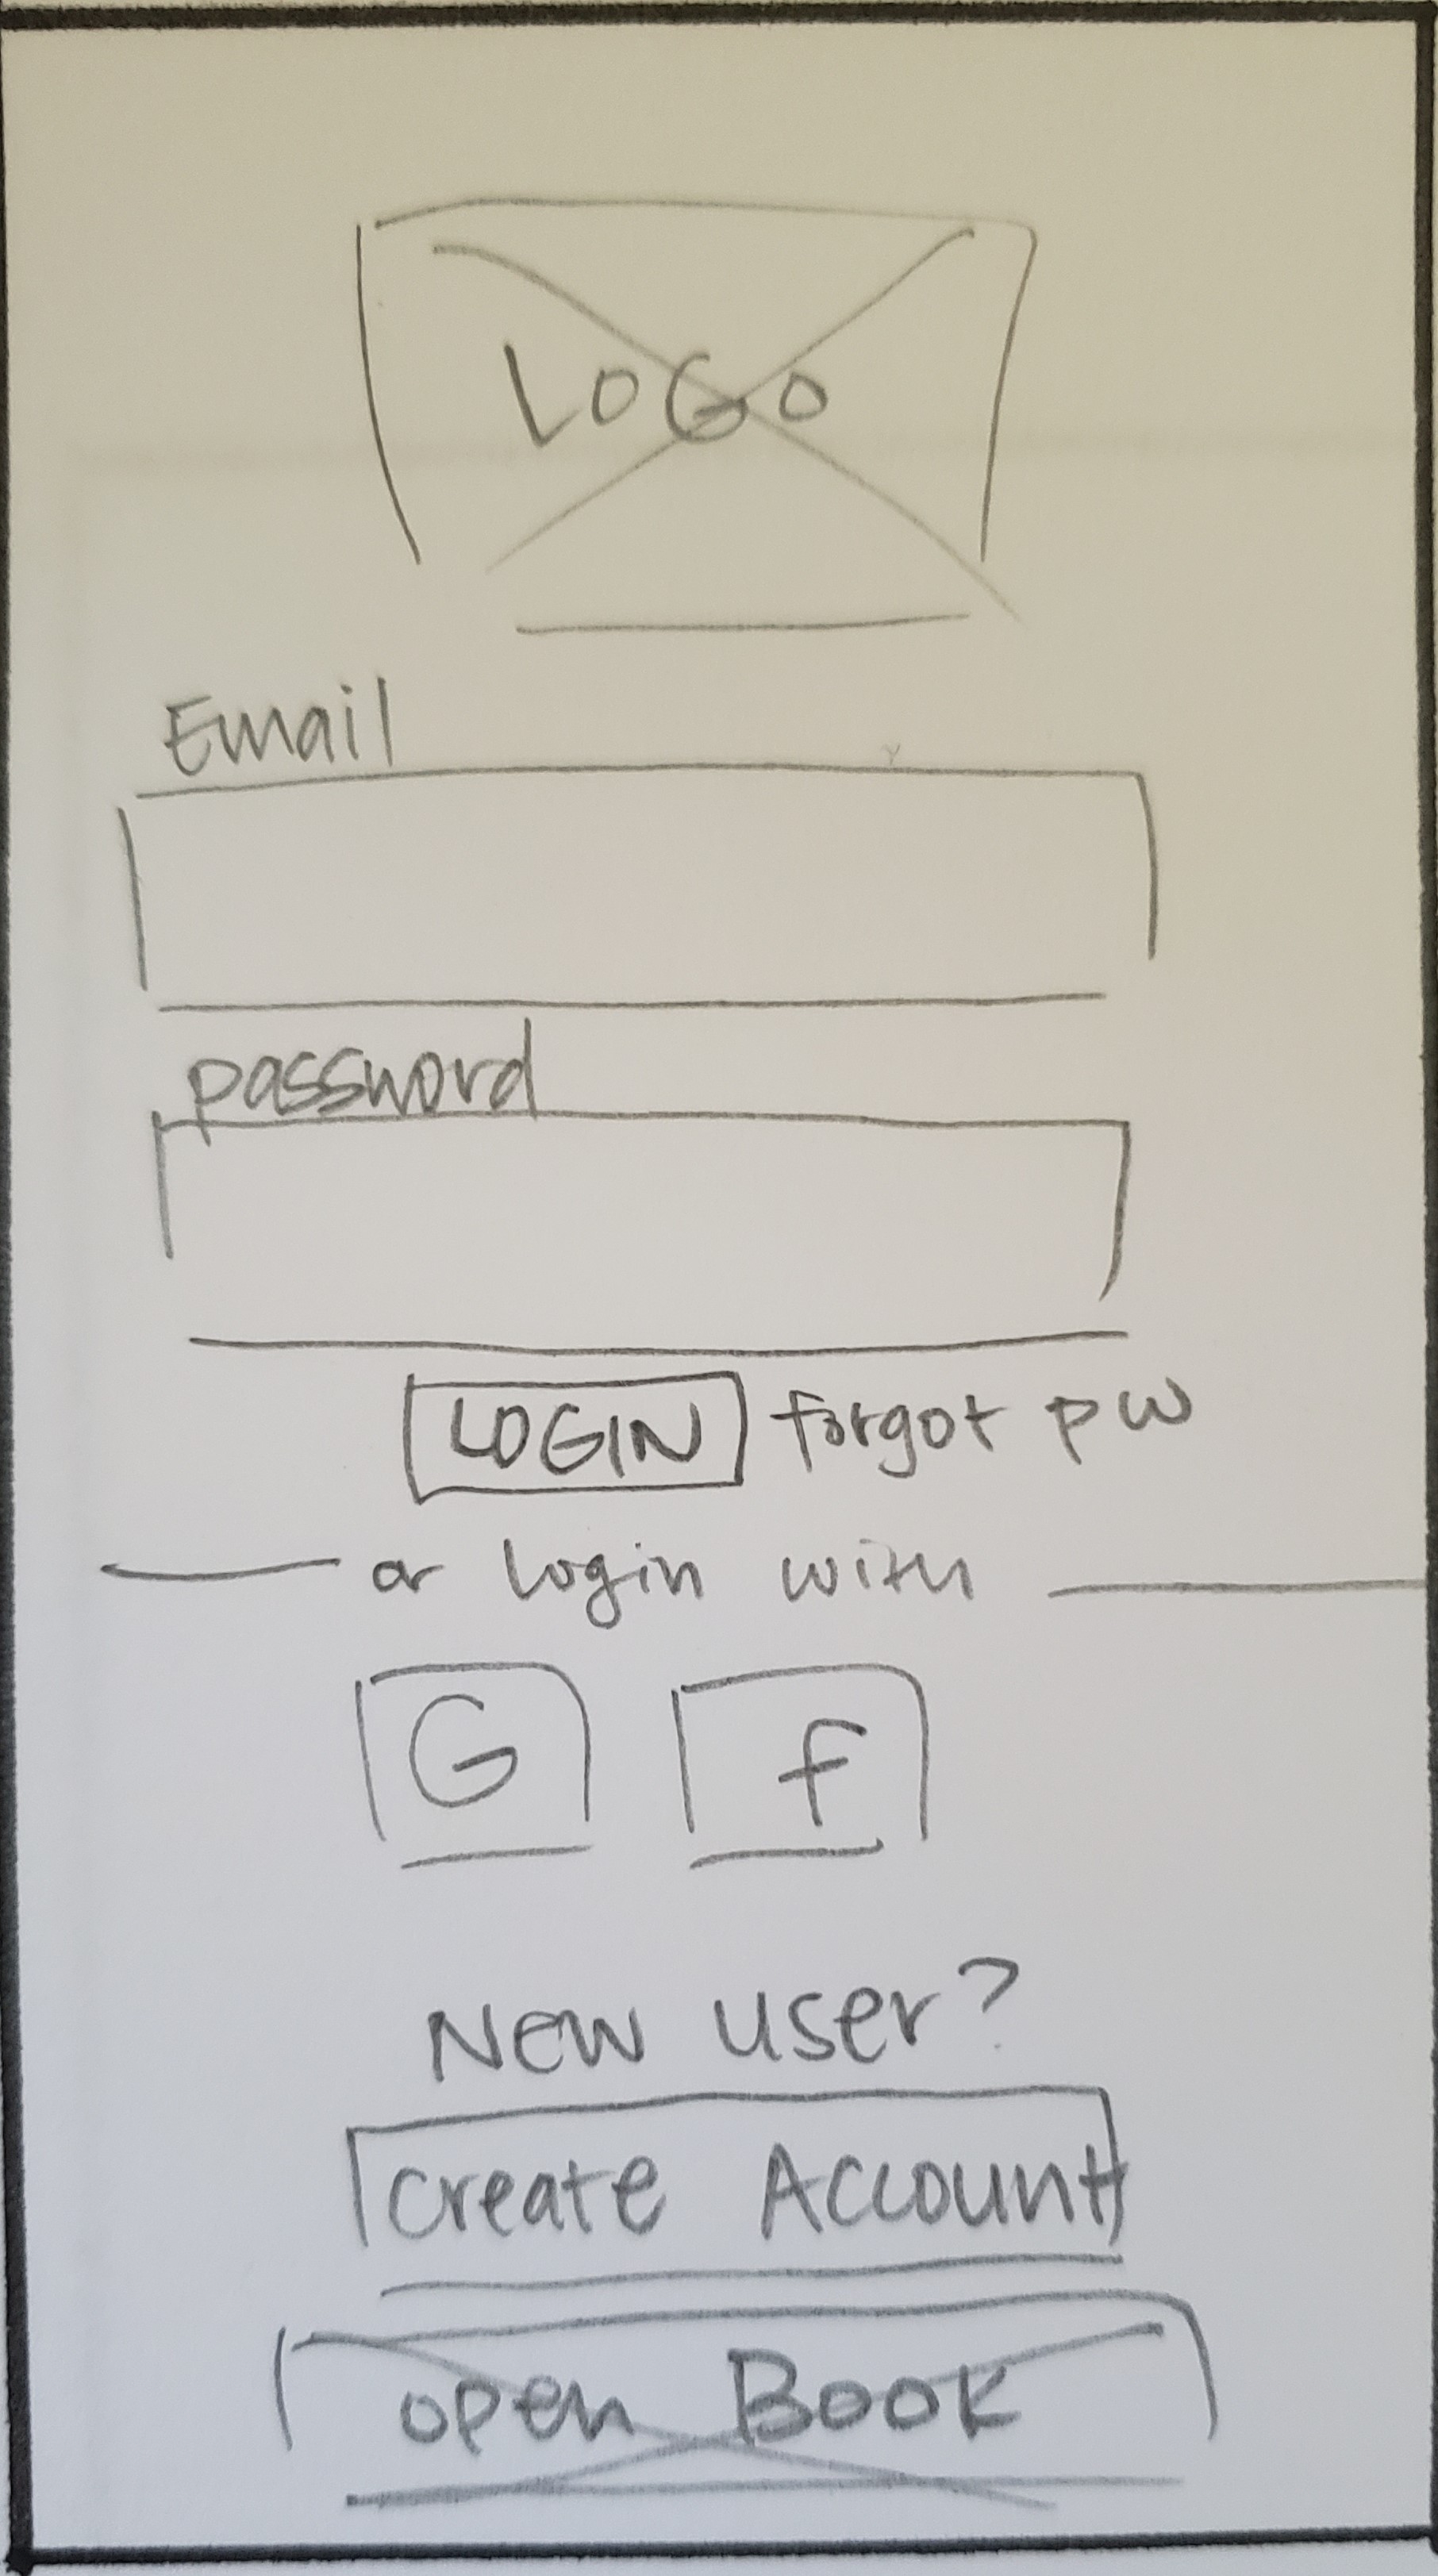 LOGO
Email
password
LOGIN forgot pw
or login with
G f
New user?
Create Account
open Book